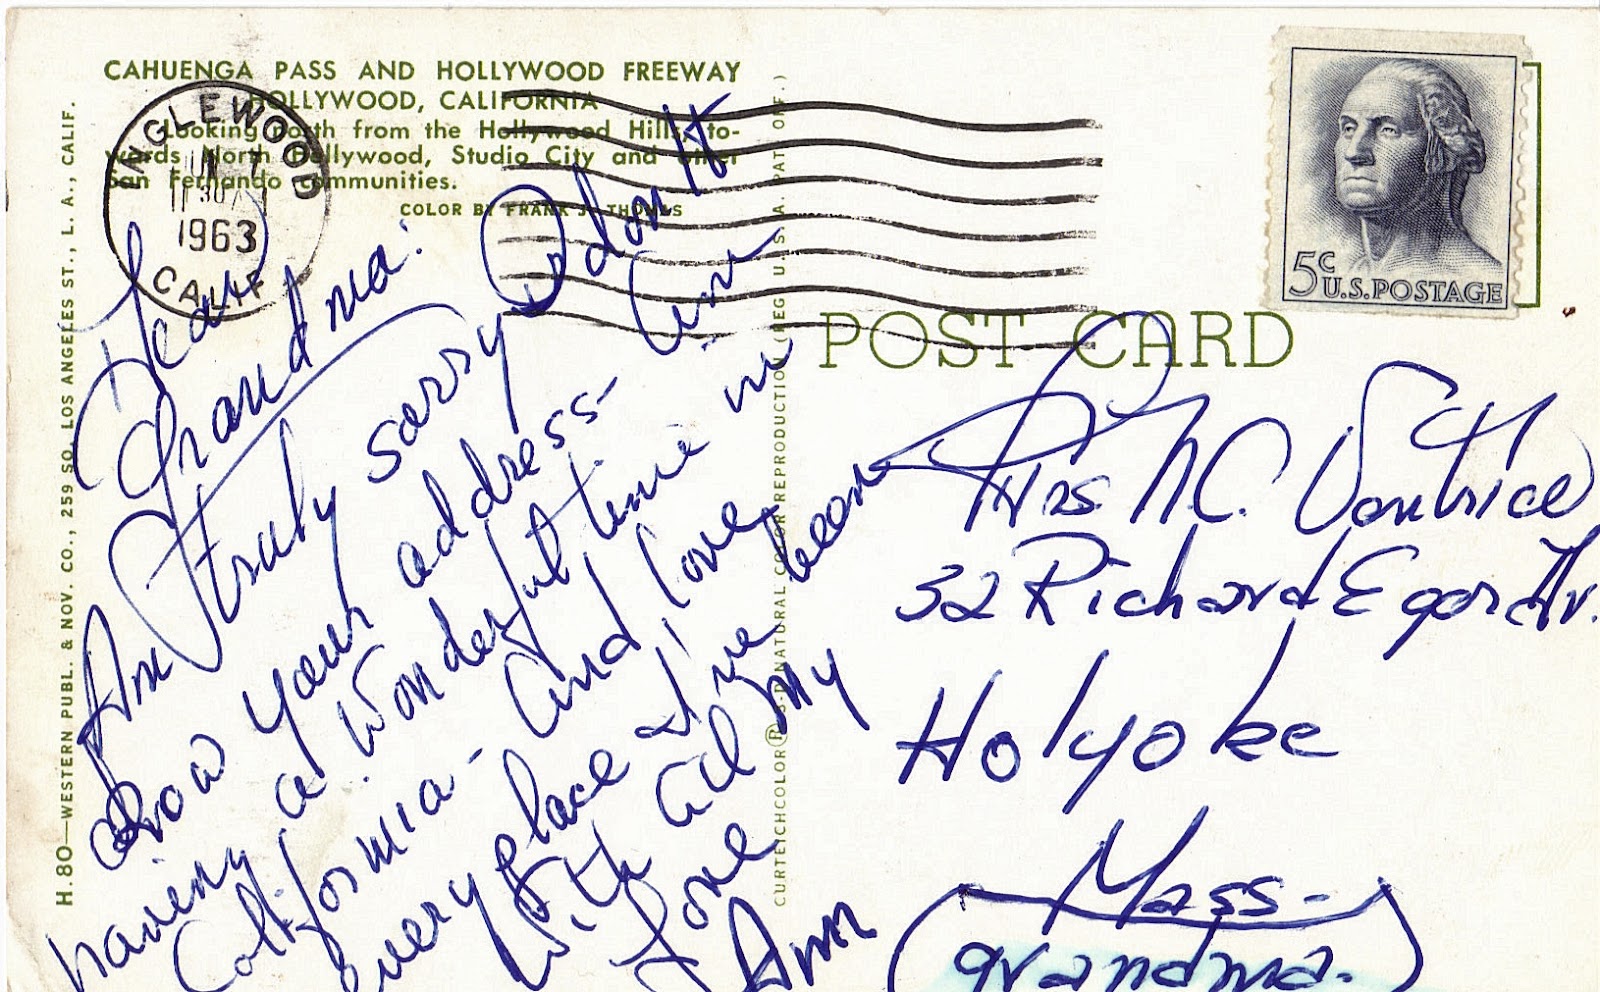 CAHUENGA PASS AND HOLLYWOOD FREEWAY
HOLLYWOOD, CALIFORNIA
Looking north from the Hollywood Hills to-
wards North Hollywood, Studio City and other
San Fernando communities.
COLOR BY FRANK J. THOMAS
INGLEWOOD
1963
CALIF
H.80—WESTERN PUBL. & NOV. CO., 259 SO. LOS ANGELES ST., L. A., CALIF.
Dear
Grandma:
Am truly sorry I don't
know your address- Am
having a wonderful time in
California- and love
every place I've been
With all my
Love
Ann
CURTEICHCOLOR® 3-D NATURAL COLOR REPRODUCTION (REG. U.S.A. PAT. OFF.)
5c
U.S. POSTAGE
POST CARD
Mrs. N.C.
32 Richard Egar Av.
Holyoke
Mass-
grandma.